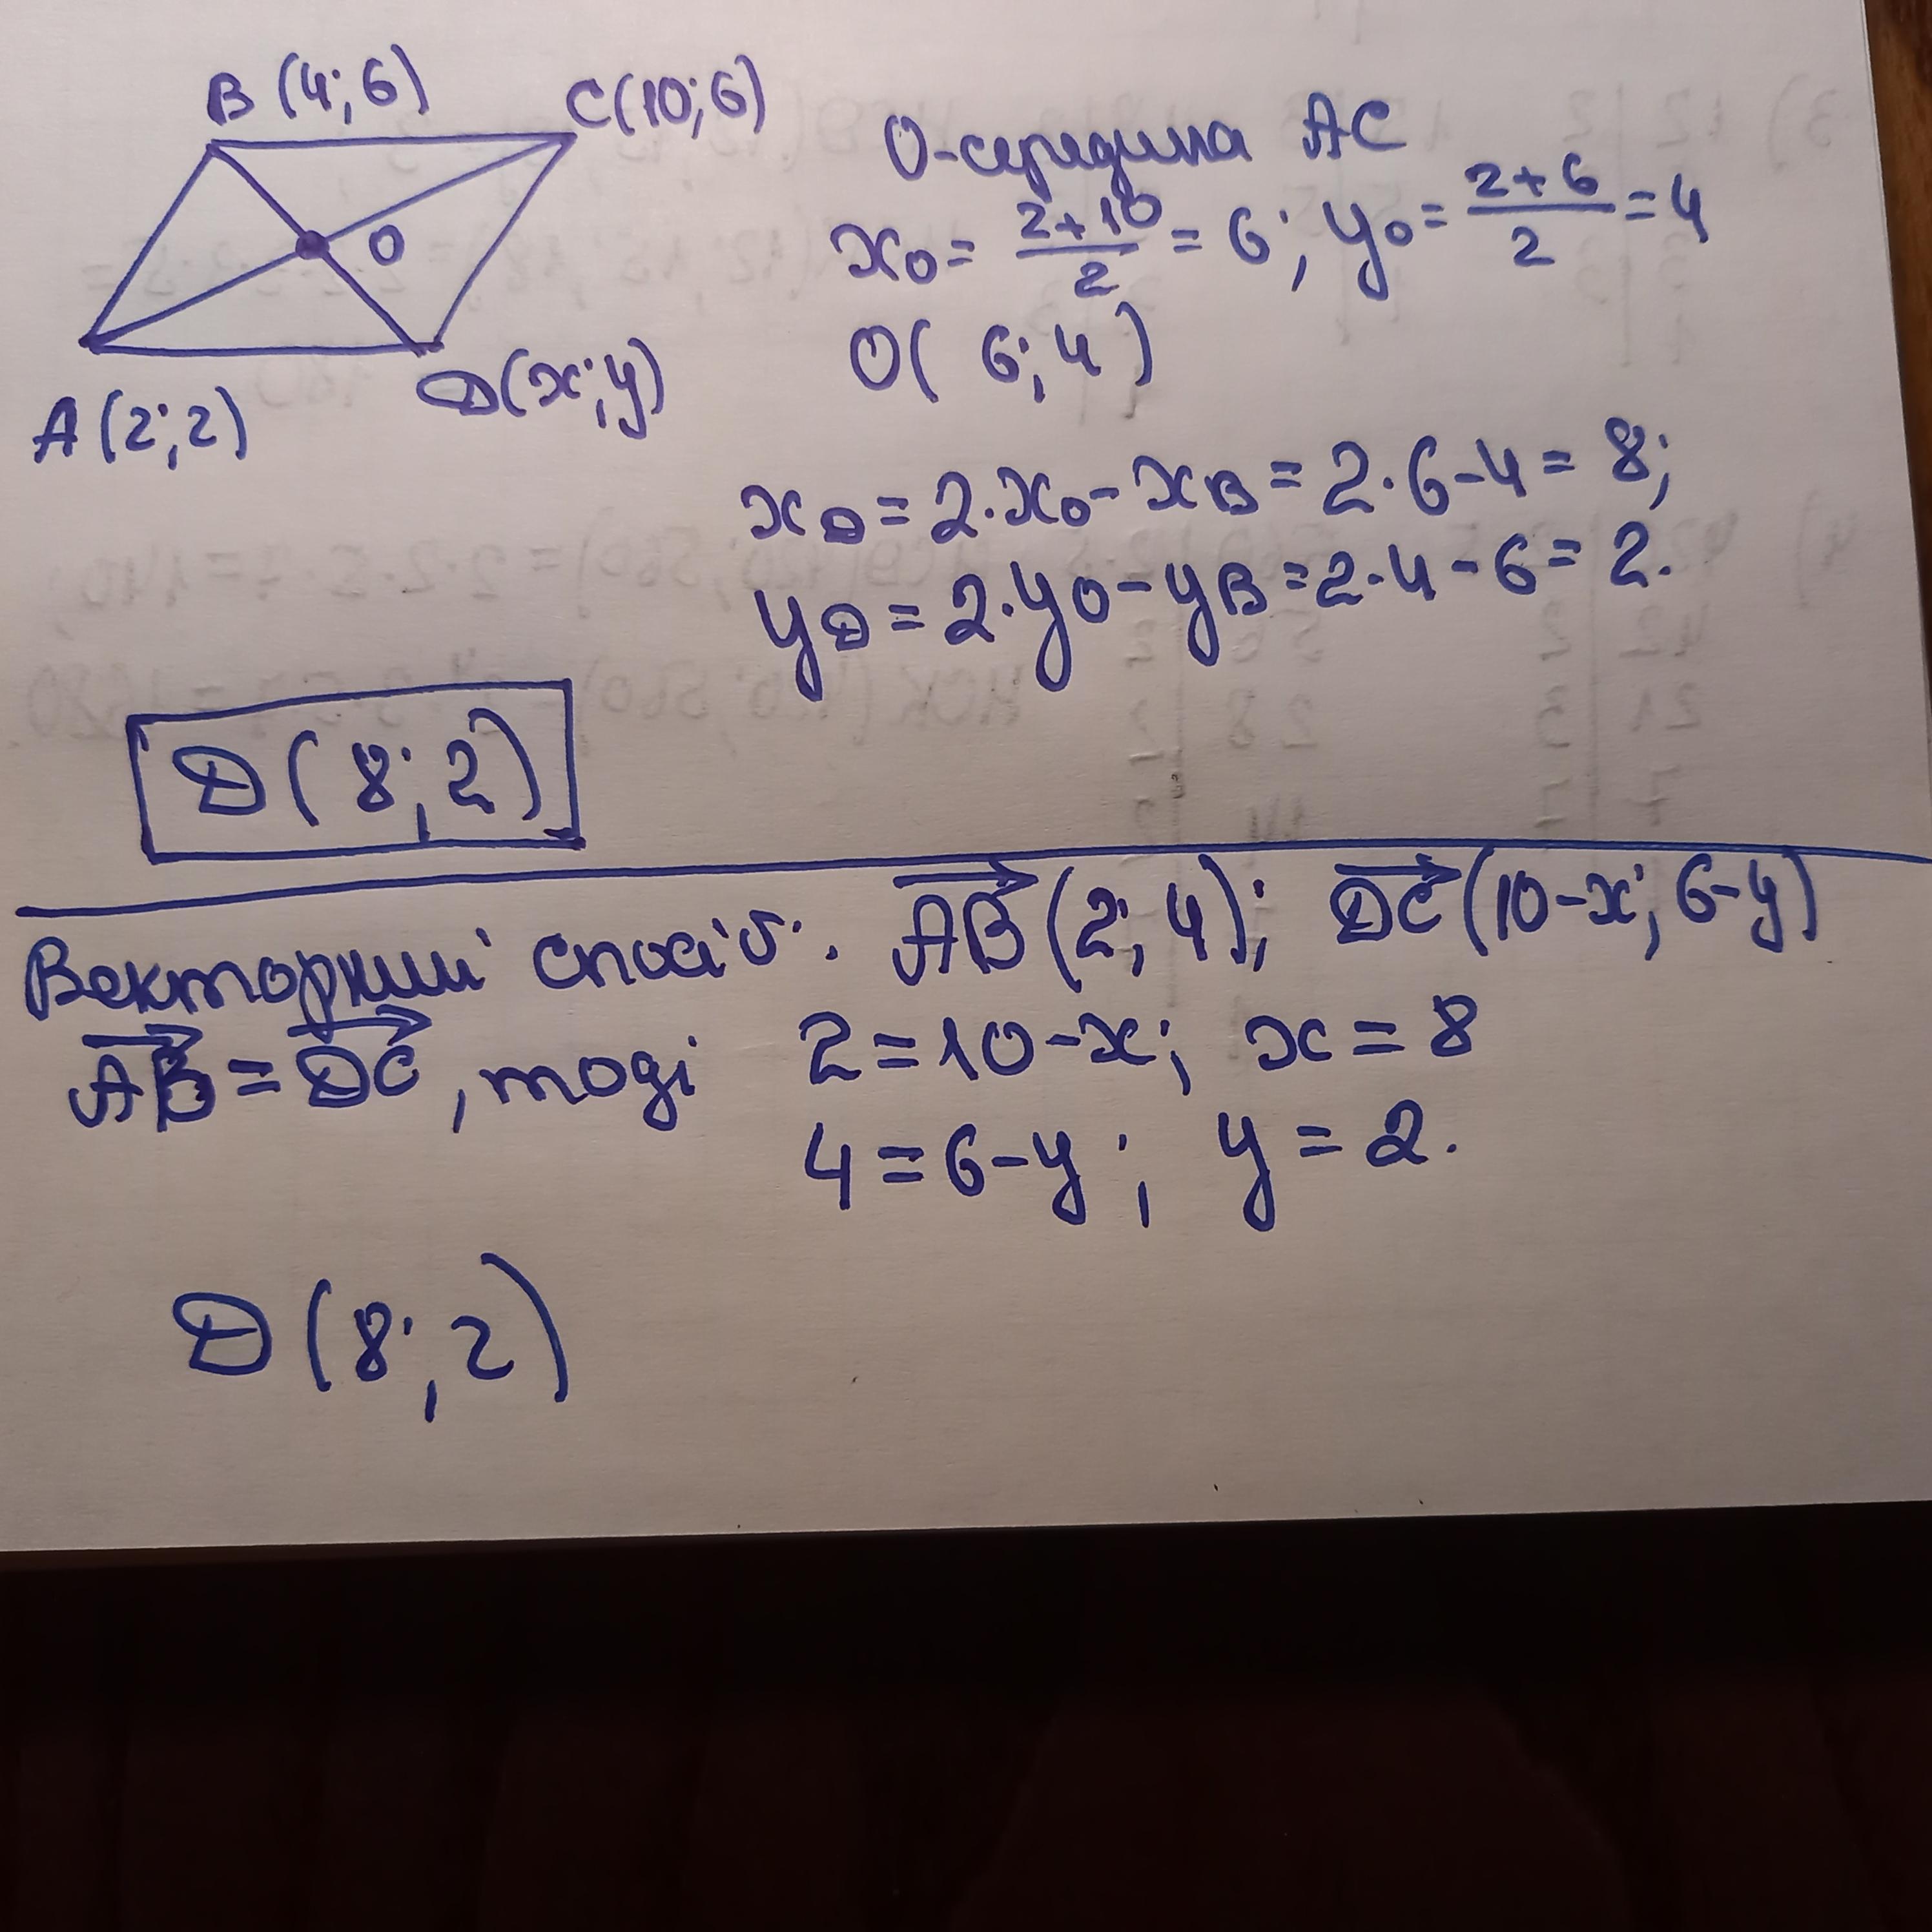 B (4; 6)
C(10; 6)
O
A (2; 2)
D(x; y)
O-середина AC
x₀ = \frac{2+10}{2} = 6; y₀ = \frac{2+6}{2} = 4
O( 6; 4 )
x_D = 2·x₀ - x_B = 2·6-4 = 8;
y_D = 2·y₀ - y_B = 2·4-6 = 2.
D( 8; 2)
Векторний спосіб: \overrightarrow{AB} (2; 4); \overrightarrow{DC} (10-x; 6-y)
\overrightarrow{AB} = \overrightarrow{DC}, тоді 2 = 10-x; x = 8
4 = 6-y; y = 2.
D (8; 2)